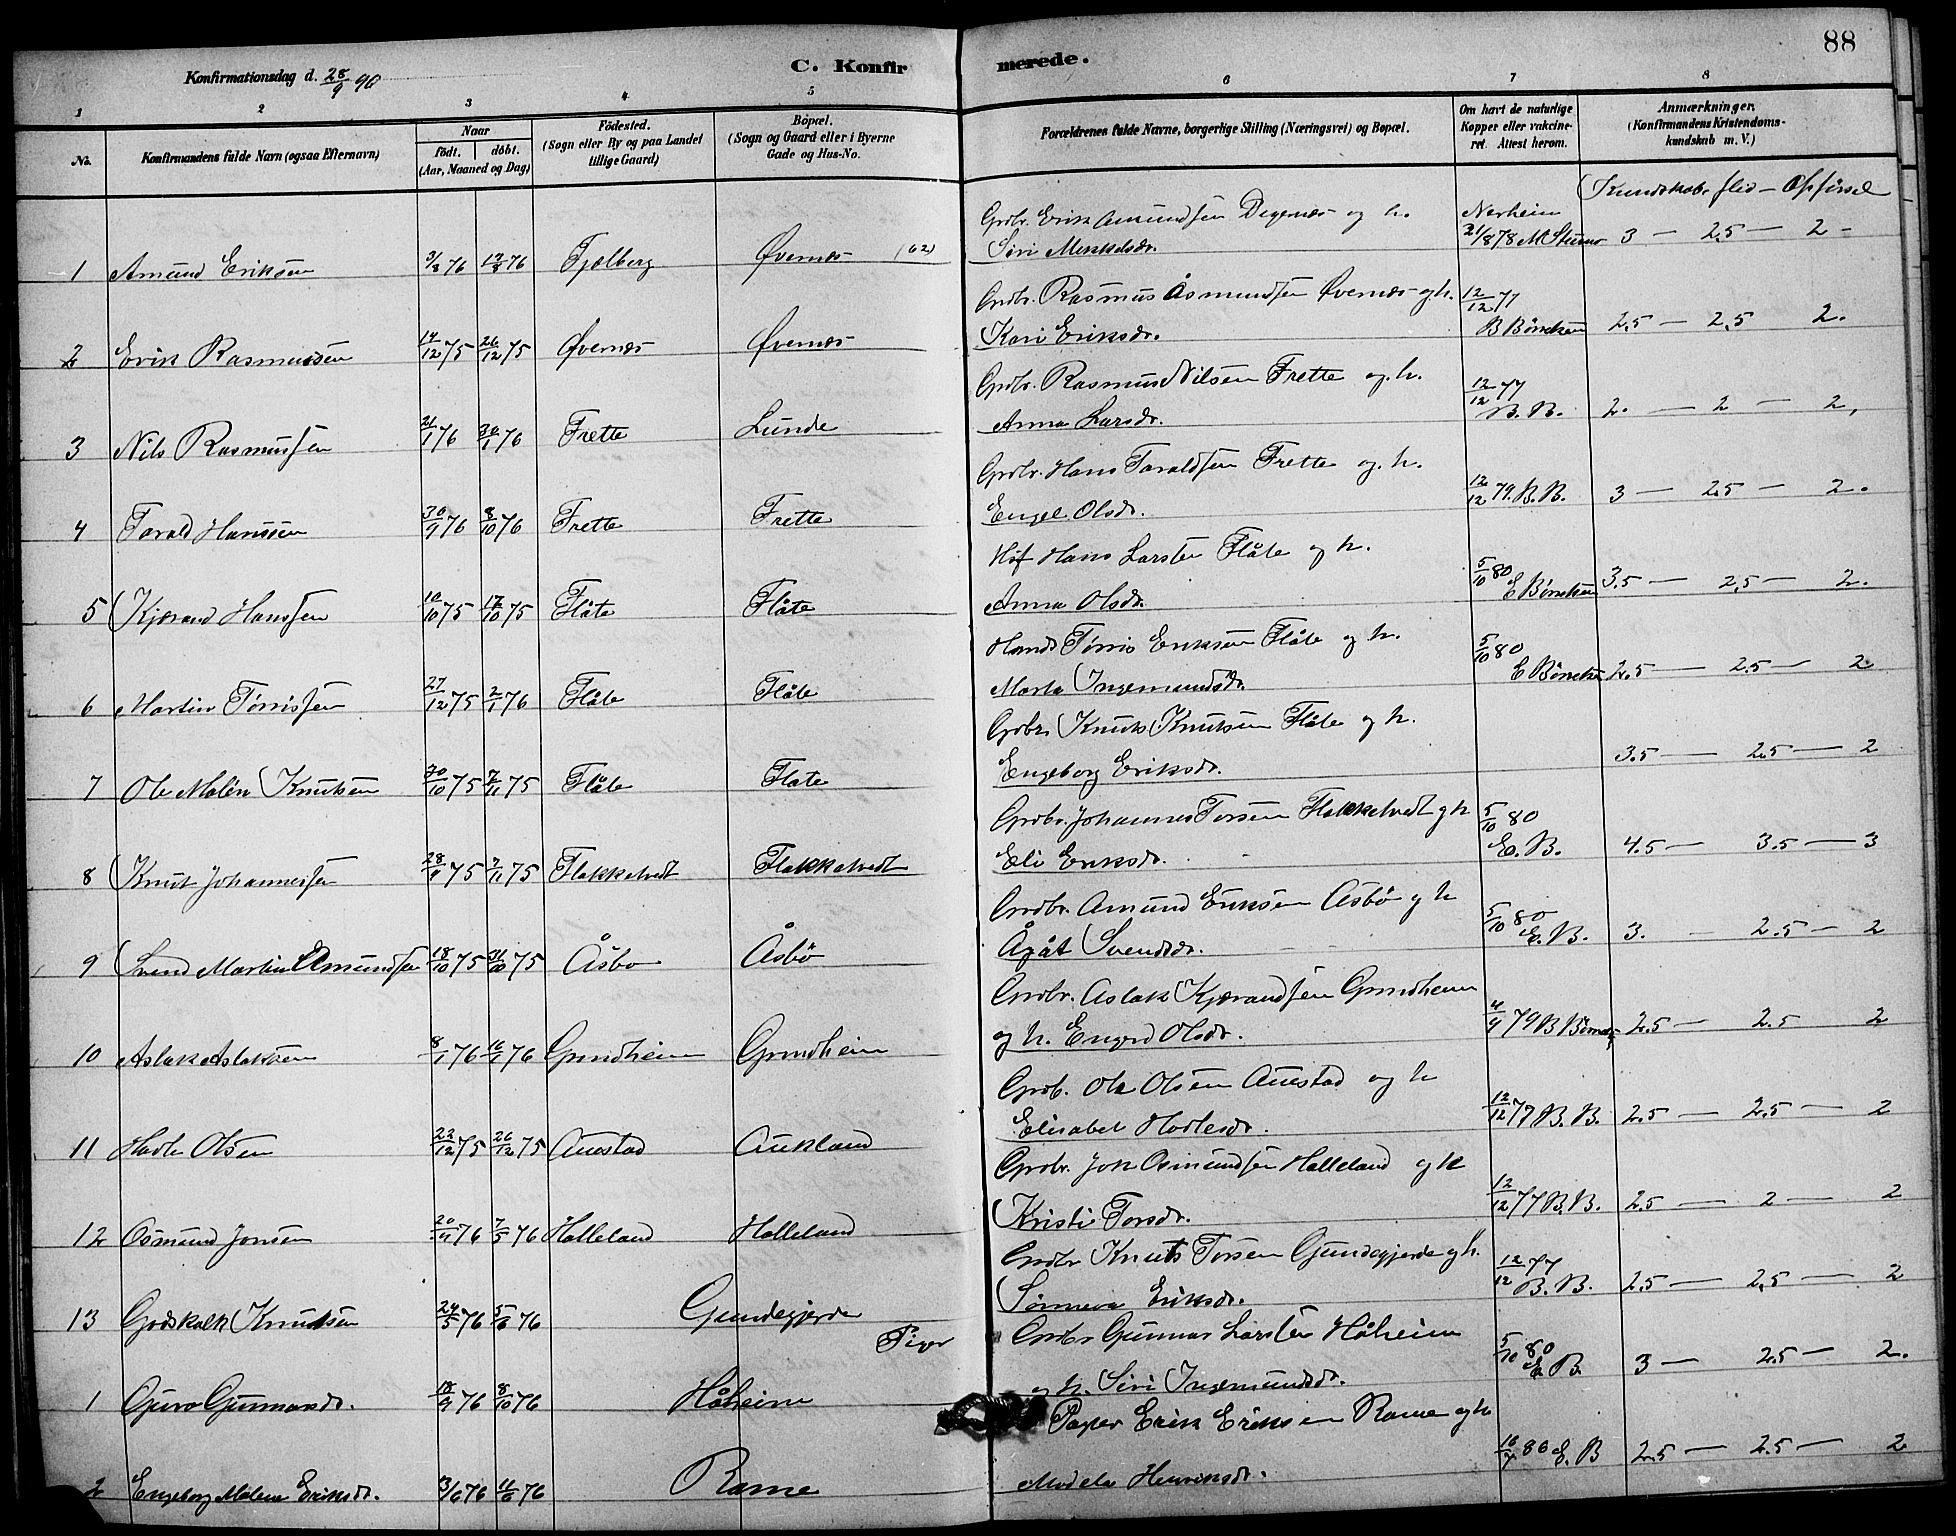 88
C. Konfirmerede.
Konfirmationsdag d. 28/9 90
1 2 3 4 5 6 7 8
No.
Konfirmandens fulde Navn (ogsaa Efternavn)
Naar
født. døbt.
(Aar, Maaned og Dag)
Fødested.
(Sogn eller By og paa Landet
tillige Gaard)
Bopæl.
(Sogn og Gaard eller i Byerne
Gade og Hus-No.
Forældrenes fulde Navne, borgerlige Stilling (Næringsvei) og Bopæl.
Om havt de naturlige
Kopper eller vakcine-
ret. Attest herom.
Anmærkninger.
(Konfirmandens Kristendoms-
kundskab m. V.)
Kundskab. flid — Opførsel
1 Amund Eriksen 3/8 76 19/8 76 Fjelberg Øvernæs (62) Grdbr. Erik Amundsen Degernæs og h. Nerheim
Siri Mikkelsdr. 21/8 78 3 — 2.5 — 2 —
2 Erik Rasmussen 14/12 75 26/12 75 Øvernæs Øvernæs Grdbr. Rasmus Åsmundsen Øvernæs og h. 12/12 77
Kari Eriksdr. B Børretzen 2.5 — 2.5 2.
3 Nils Rasmussen 21/1 76 30/1 76 Frette Lunde Grdbr. Rasmus Nilsen Frette og h. 12/12 77
Anna Larsdr. B. B. 2. — 2 — 2,
4 Tarald Hanssen 30/9 76 8/10 76 Frette Frette Grdbr. Hans Taraldsen Frette og h.
Engel Olsdr. 12/12 79. B. B. 3 — 2.5 — 2.
5 Kjærand Hanssen 10/10 75 17/10 75 Flåte Flåte Hans Larsen Flåte og h. 5/10 80
Anna Olsdr. E Børretzen 3.5 — 2.5 — 2.
6 Martin Tørrissen 27/12 75 2/1 76 Flåte Flåte Tørris Eriksen Flåte og h. 5/10 80
Marta Ingemundsdr. E Børretzen 2.5 — 2.5 — 2
7 Ole Malén Knutsen 30/10 75 7/11 75 Flåte Flate Grdbr. Knut Knutsen Flåte og h.
Engeborg Eriksdr. 3.5 — 2.5 — 2
8 Knut Johannessen 28/9 75 7/11 75 Flakketvedt Flakketvedt Grdbr. Johannes Torsen Flakketvedt og h 5/10 80
Eli Eriksdr. E. B. 4.5 — 3.5 — 3
9 Svend Martin Amundsen 18/10 75 31/10 75 Åsbø Åsbø Grdbr. Amund Eriksen Åsbø og h 5/10 80
Ågåt Svendsdr. E. B. 3. — 2.5 — 2
10 Aslak Aslaksen 8/1 76 16/1 76 Grindheim Grindheim Grdbr. Aslak Kjærandsen Grindheim
og h. Engerd Olsdr. 4/9 79 B 2.5 — 2.5 2
11 Hadle Olsen 22/12 75 26/12 75 Auestad Aukland Grdb. Ole Olsen Auestad og h
Elisabet Hadlesdr. 12/12 77 B. B. 2.5 — 2.5 — 2
12 Osmund Jonsen 20/4 76 7/5 76 Halleland Halleland Grdbr. Jon Osmundsen Halleland og h
Kristi Torsdr. 12/12 77 B. B. 2.5 — 2 — 2
13 Godskalk Knutsen 24/5 76 5/6 76 Gundegjerde Grdbr Knut Torsen Gundegjerde og h. 12/12 77
Sønneva Eriksdr. B. B. 2.5 — 2.5 — 2
Piger
1 Guro Gunnarsdr. 18/9 76 8/10 76 Håheim Grdbr Gunnar Larsen Håheim 5/10 80
og h. Siri Ingemundsdr. E. B. 3 — 2.5 — 2.
2 Engeborg Malene Eriksdr. 3/6 76 11/6 76 Rame Erik Eriksen Rame og h
Madela Henriksdr. 16/7 86 E. B 2.5 — 2.5 — 2